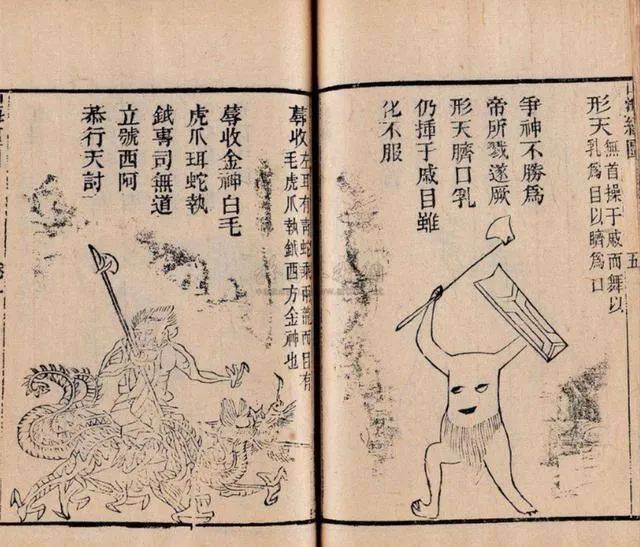 五
形天 無首操干戚而舞以
乳爲目以臍爲口
爭神不勝爲
帝所戮遂厥
形天臍口乳
仍揮干戚目雖
化不服
蓐收 左耳有青蛇乘兩龍而目有
毛虎爪執鉞西方金神也
蓐收金神白毛
虎爪珥蛇執
鉞專司無道
立號西阿
恭行天討